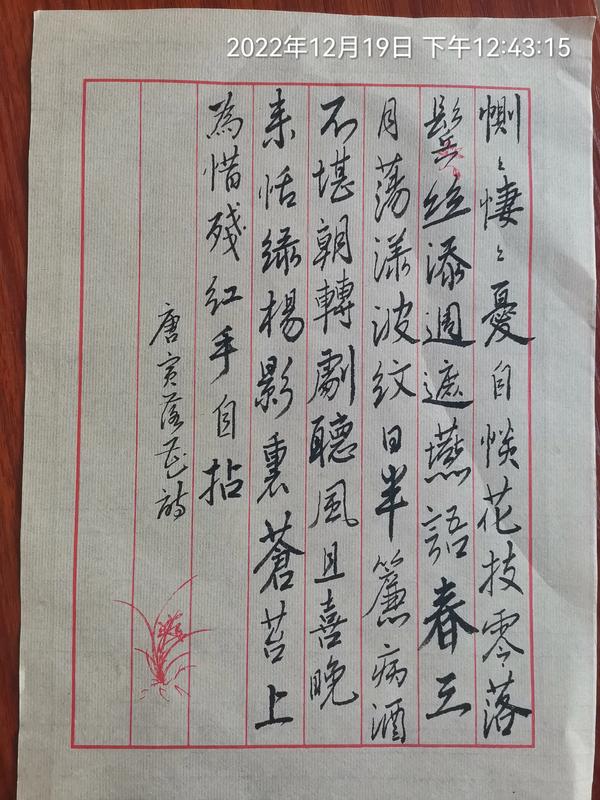 2022年12月19日 下午12:43:15
惻〻悽〻憂自惔花技零落
鬢丝添週遮燕語春三
月蕩漾波纹日半簾病酒
不堪朝轉劇聽風且喜晚
来恬緑楊影裏蒼苔上
為惜殘红手自拈
唐寅落花詩